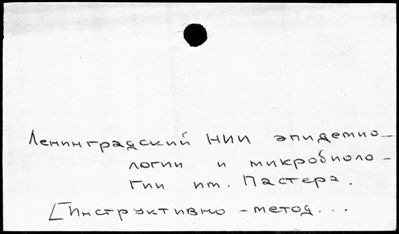 Ленинградский НИИ эпидемио-
логии и микробиоло-
гии им. Пастера.
[Инструктивно-метод...